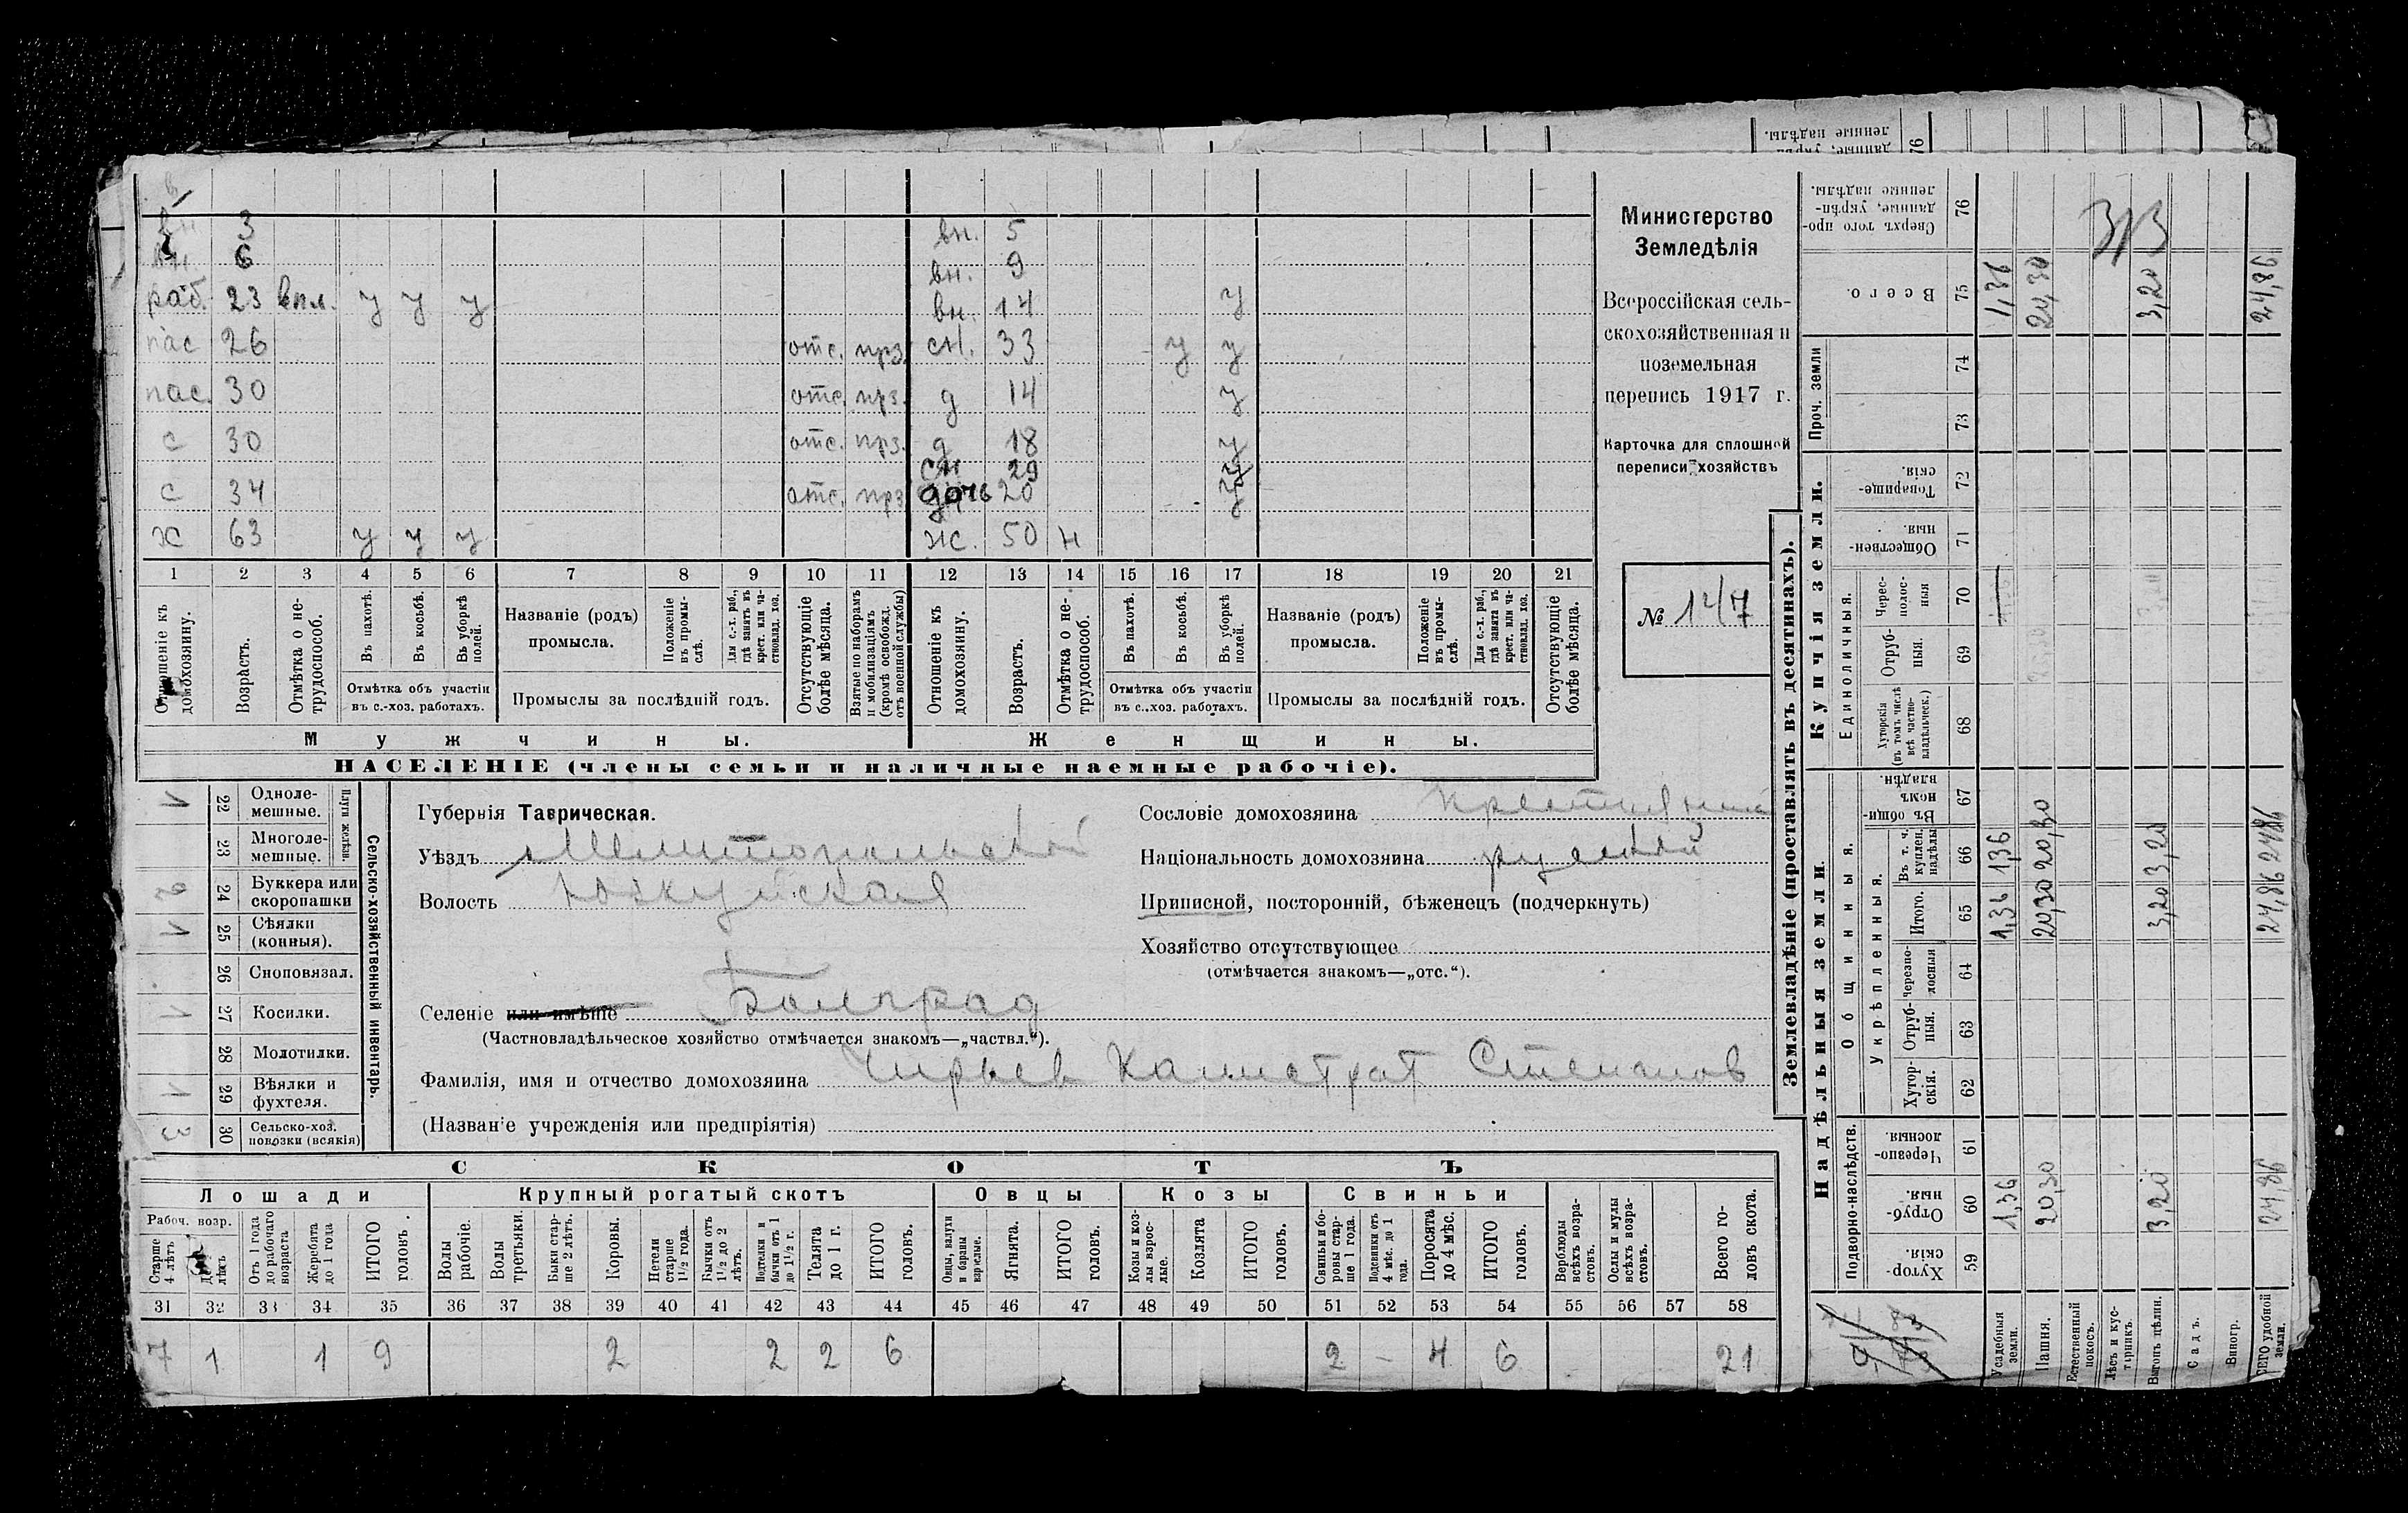 данные, укрѣп-
ленные надѣлы.
76
вн 3 вн. 5
вн 6 вн. 9
раб. 23 впл. у у у вн. 14 у
пас 26 отс. прз. сн. 33 у у
пас. 30 отс. прз. д 14 у
с 30 отс. прз. д 18 у
сн 29 у
с 34 отс. прз дочь 20 у
х 63 у у у ж. 50 н
1 2 3 4 5 6 7 8 9 10 11 12 13 14 15 16 17 18 19 20 21
Отношеніе къ домохозяину.
Возрастъ.
Отмѣтка о не-трудоспособ.
Въ пахотѣ.
Въ косьбѣ.
Въ уборкѣ полей.
Отмѣтка объ участіи
въ с.-хоз. работахъ.
Названіе (родъ)
промысла.
Положеніе въ промы-слѣ.
Для с.-х. раб., гдѣ занятъ въ крест. или ча-стновлад. хоз.
Промыслы за послѣдній годъ.
Отсутствующіе болѣе мѣсяца.
Взятые по наборамъ и мобилизаціямъ (кромѣ освобожд. отъ военной службы)
Отношеніе къ домохозяину.
Возрастъ.
Отмѣтка о не-трудоспособ.
Въ пахотѣ.
Въ косьбѣ.
Въ уборкѣ полей.
Отмѣтка объ участіи
въ с..хоз. работахъ.
Названіе (родъ)
промысла.
Положеніе въ промы-слѣ.
Для с.-х. раб., гдѣ занята въ крест. или ча-стновлад. хоз.
Промыслы за послѣдній годъ.
Отсутствующіе болѣе мѣсяца.
Мужчины. Женщины.
НАСЕЛЕНІЕ (члены семьи и наличные наемные рабочіе).
Министерство
Земледѣлія
Всероссійская сель-
скохозяйственная и
поземельная
перепись 1917 г.
Карточка для сплошной
переписи хозяйствъ
№ 147
Сельско-хозяйственный инвентарь.
Плуги желѣзн.
1 22 Одноле-мешные.
23 Многоле-мешные.
2 24 Буккера или скоропашки
1 25 Сѣялки (конныя).
26 Сноповязал.
1 27 Косилки.
28 Молотилки.
1 29 Вѣялки и фухтеля.
3 30 Сельско-хоз. повозки (всякія)
Губернія Таврическая.
Уѣздъ Мелитопольскій
Волость
Селеніе или имѣніе Болград
(Частновладѣльческое хозяйство отмѣчается знакомъ—„частвл.“).
Фамилія, имя и отчество домохозяина Чирьев Калистрат Степанов
(Названіе учрежденія или предпріятія)
Сословіе домохозяина крестьянин
Національность домохозяина русскій
Приписной, посторонній, бѣженецъ (подчеркнуть)
Хозяйство отсутствующее
(отмѣчается знакомъ—„отс.“).
СКОТЪ
Лошади Крупный рогатый скотъ Овцы Козы Свиньи
Рабоч. возр.
Старше 4 лѣтъ
Отъ 1 года до рабочаго возраста
Жеребята до 1 года
ИТОГО головъ.
Волы рабочіе.
Волы третьяки.
Быки стар-ше 2 лѣтъ.
Коровы.
Нетели старше 1½ года.
Бычки отъ 1½ до 2 лѣтъ.
Подтелки и бычки отъ 1 до 1½ г.
Телята до 1 г.
ИТОГО головъ.
Овцы, валухи и бараны взрослые.
Ягнята.
ИТОГО головъ.
Козы и коз-лы взрос-лые.
Козлята
ИТОГО головъ.
Свиньи и бо-ровы стар-ше 1 года.
Подсвинки отъ 4 мѣс. до 1 года.
Поросята до 4 мѣс.
ИТОГО головъ.
Верблюды всѣхъ возра-стовъ.
Ослы и мулы всѣхъ возра-стовъ.
Всего го-ловъ скота.
31 32 33 34 35 36 37 38 39 40 41 42 43 44 45 46 47 48 49 50 51 52 53 54 55 56 57 58
7 1 1 9 2 2 2 6 2 – 4 6 21
Землевладѣніе (проставлять въ десятинахъ).
Сверхъ того про-данные, укрѣп-ленные надѣлы. 76
Всего. 75 1,36 20,30 3,20 24,86
Купчія земли.
Проч. земли
74
73
Товарище-скія. 72
Обществен-ныя. 71
Единоличныя.
Черес-полос-ныя 70
Отруб-ныя. 69
Хуторскія (въ томъ числѣ всѣ частно-владѣльческ.) 68
Надѣльныя земли.
Общинныя.
Въ общин-номъ владѣн. 67 20,30 24,86
Укрѣпленныя.
Въ т. ч. куплен. надѣлы 66 1,36 20,30 3,20 24,86
Итого. 65 1,36 20,30 3,20 24,86
Черезпо-лосныя 64
Отруб-ныя. 63
Хутор-скія. 62
Подворно-наслѣдств.
Черезпо-лосныя. 61
Отруб-ныя. 60 1,36 20,30 3,20 24,86
Хутор-скія. 59
Усадебныя земли.
Пашня.
Естественный покосъ.
Лѣсъ и кус-тарникъ.
Выгонъ цѣлин.
Садъ.
Виногр.
ВСЕГО удобной земли.